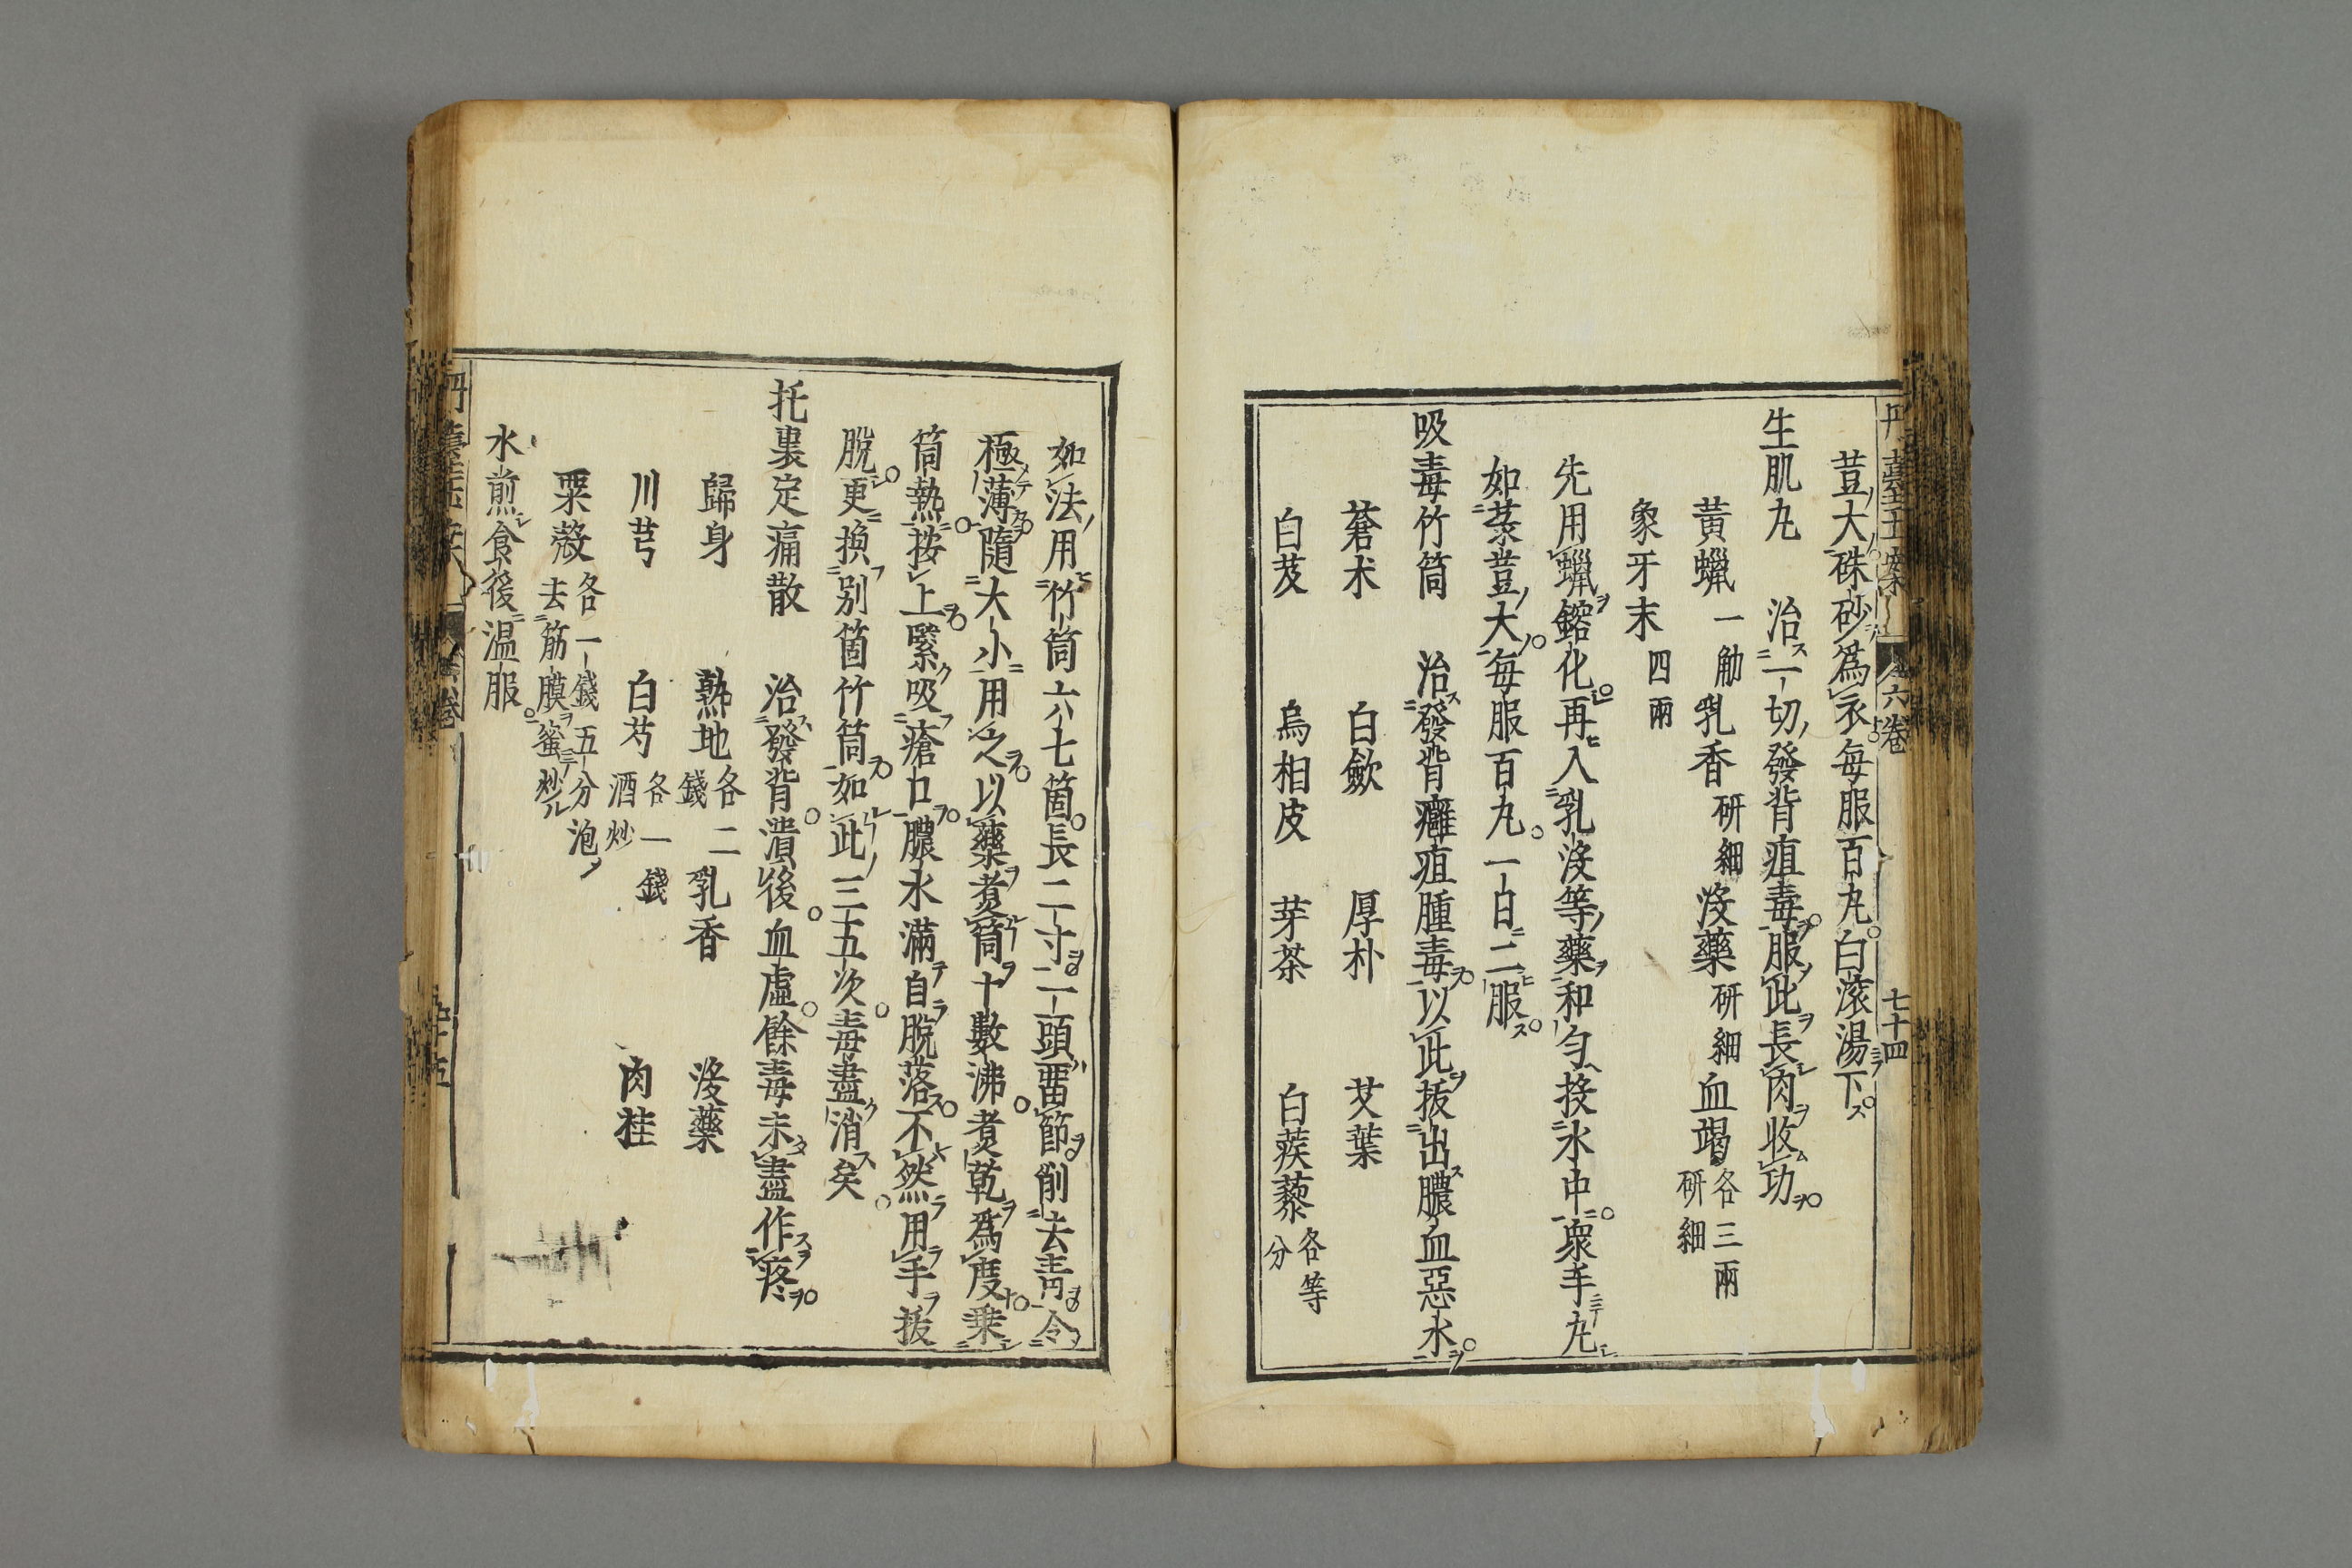 丹臺玉案 六卷 七十四
荳大硃砂爲衣每服百丸白滚湯下
生肌丸　治一切發背疽毒服此長肉收功
黃蠟一觔 乳香研細 沒藥研細 血竭各三兩研細
象牙末四兩
先用蠟鎔化再入乳沒等藥和勻投水中衆手丸
如菉荳大每服百丸一日二服
吸毒竹筒　治發背癰疽腫毒以此拔出膿血惡水
蒼朮　白歛　厚朴　艾葉
白芨　烏桕皮　芽茶　白蒺藜各等分
如法用竹筒六七箇長二寸一頭畱節削去青令
極薄隨大小用之以藥煮筒十數沸煮乾爲度乗
筒熱按上緊吸瘡口膿水滿自脫落不然用手拔
脫更換别箇竹筒如此三五次毒盡消矣
托裏定痛散　治發背潰後血虛餘毒未盡作疼
歸身　熟地各二錢　乳香　沒藥
川芎　白芍各一錢酒炒　肉桂
粟殼各一錢五分泡去筋膜蜜炒
水煎食後温服